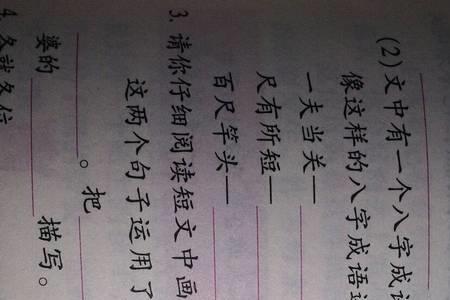 (2)文中有一个八字成
像这样的八字成语
一夫当关—
尺有所短—
百尺竿头—
3. 请你仔细阅读短文中画
这两个句子运用了
。把
婆的 描写。
4.